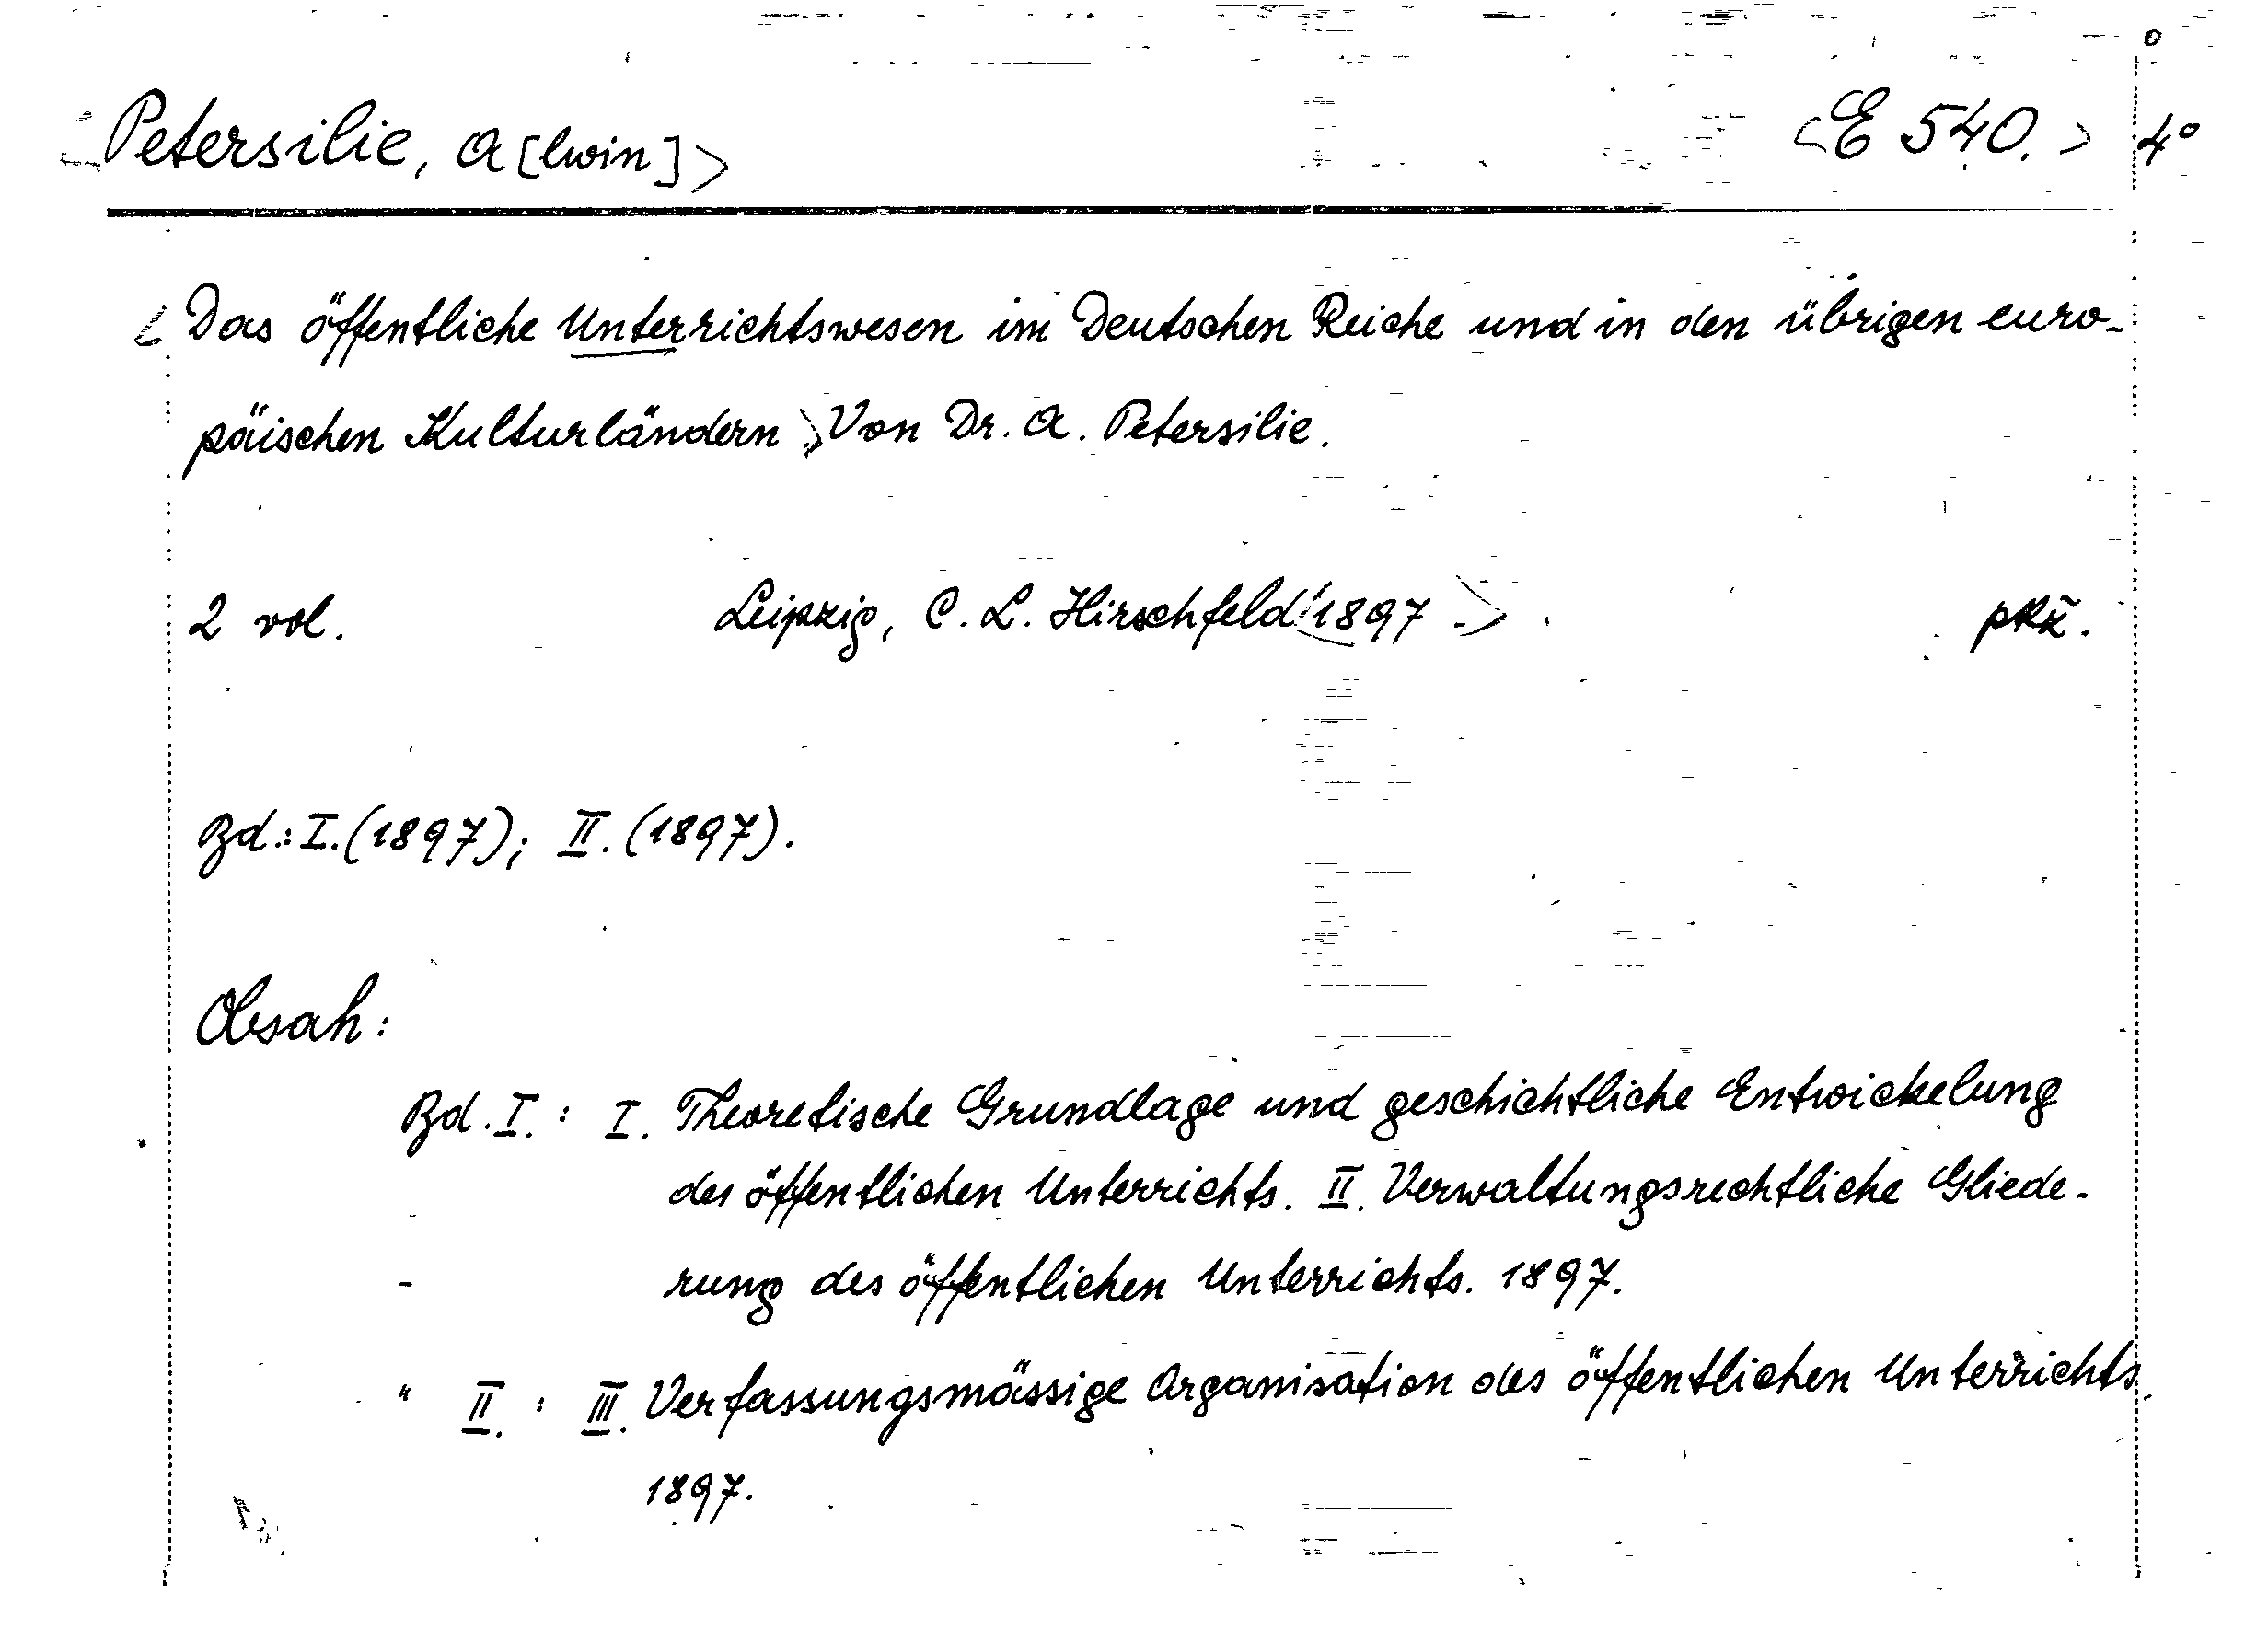 <Petersilie, A[lwin]> <E 540.> 4°
<Das öffentliche Unterrichtswesen im Deutschen Reiche und in den übrigen euro-
päischen Kulturländern.> Von Dr. A. Petersilie.
2 vol. Leipzig, C. L. Hirschfeld <1897.>
Bd.: I. (1897); II. (1897).
Obsah:
Bd. I. : I. Theoretische Grundlage und geschichtliche Entwickelung
des öffentlichen Unterrichts. II. Verwaltungsrechtliche Gliede-
rung des öffentlichen Unterrichts. 1897.
" II. : III. Verfassungsmässige Organisation des öffentlichen Unterrichts.
1897.